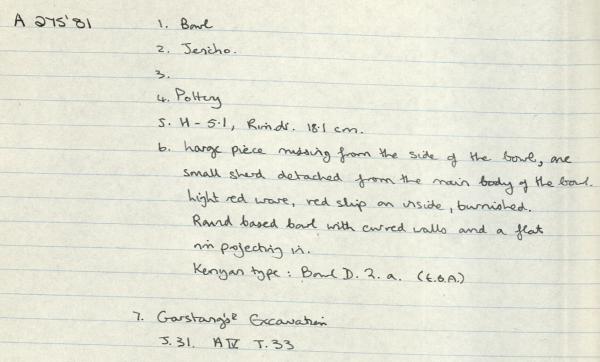 A 275'81
1. Bowl
2. Jericho.
3.
4. Pottery
5. H - 5.1, Rim dr. 18.1 cm.
6. Large piece missing from the side of the bowl, one
small sherd detached from the main body of the bowl.
Light red ware, red slip on inside, burnished.
Round based bowl with curved walls and a flat
rim projecting in.
Kenyan type: Bowl D. 2. a. (E.B.A.)
7. Garstang's Excavation
J.31. A IV T.33